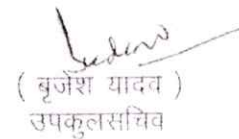 ( बृजेश यादव )
उपकुलसचिव